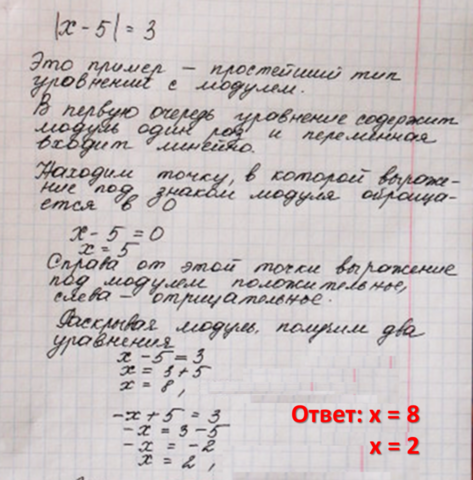 |x - 5| = 3
Это пример – простейший тип
уравнений с модулем.
В первую очередь уравнение содержит
модуль один раз и переменная
входит линейно.
Находим точку, в которой выраже-
ние под знаком модуля обраща-
ется в 0
x - 5 = 0
x = 5
Справа от этой точки выражение
под модулем положительное,
слева – отрицательное.
Раскрывая модуль, получим два
уравнения
x - 5 = 3
x = 3 + 5
x = 8,
-x + 5 = 3
-x = 3 - 5
-x = -2
x = 2,
Ответ: x = 8
x = 2